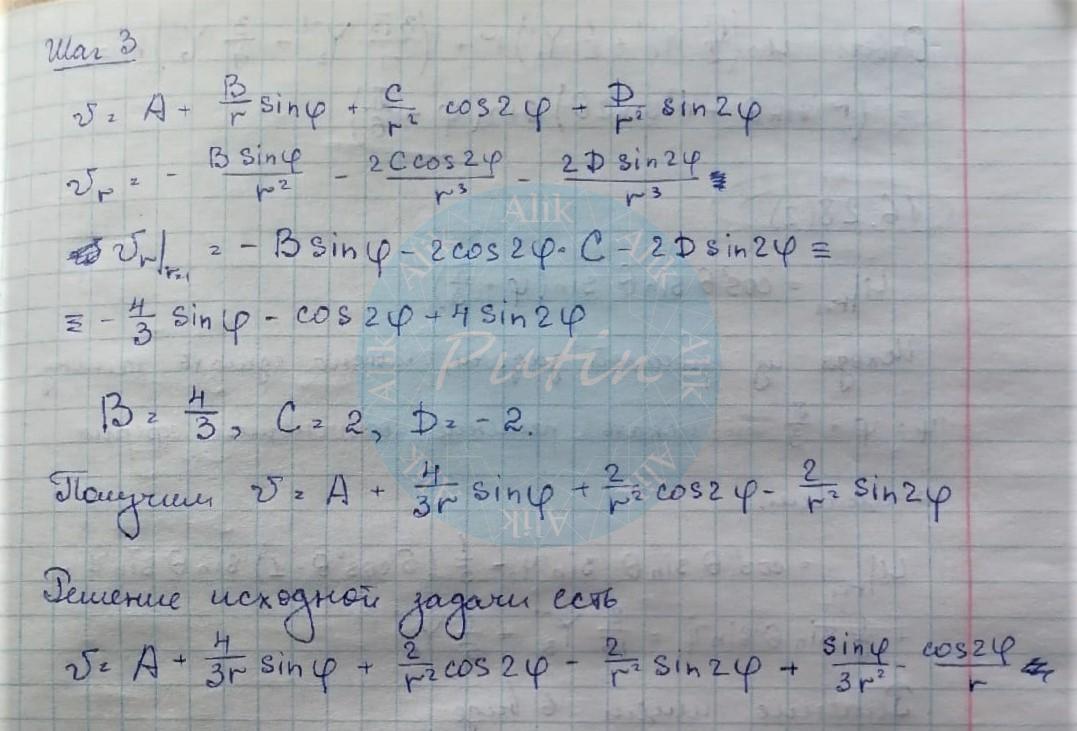 Шаг 3
v = A + B/r sinφ + C/r² cos2φ + D/r² sin2φ
v_r = - B sinφ/r² - 2C cos2φ/r³ - 2D sin2φ/r³
v_r|_{r=1} = - B sinφ - 2cos2φ · C - 2D sin2φ ≡
≡ - 4/3 sinφ - cos2φ + 4 sin2φ
B = 4/3, C = 2, D = -2.
Получим v = A + 4/3r sinφ + 2/r² cos2φ - 2/r² sin2φ
Решение исходной задачи есть
v = A + 4/3r sinφ + 2/r² cos2φ - 2/r² sin2φ + sinφ/3r² - cos2φ/r
Alik
Alik
Alik
Alik
Alik
Alik
Alik
Alik
Putin